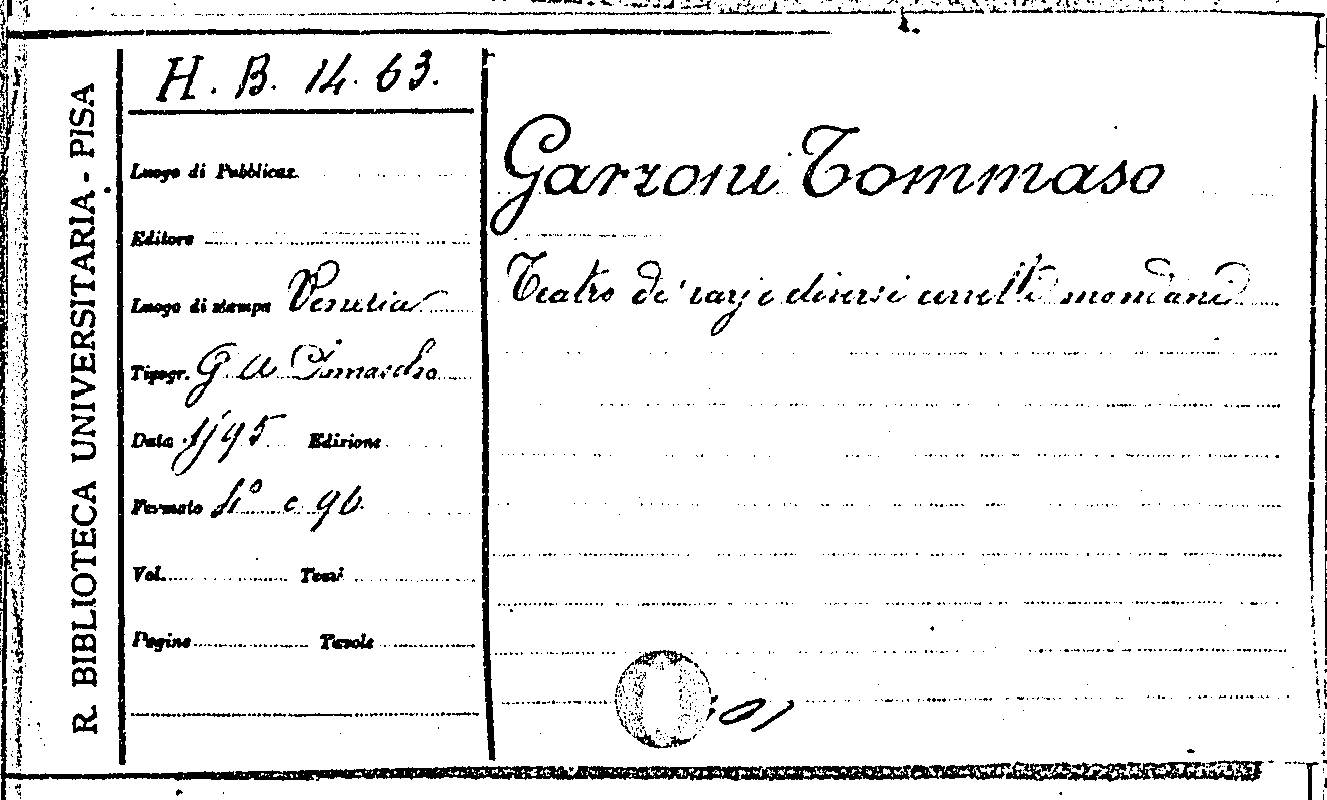 R. BIBLIOTECA UNIVERSITARIA - PISA
H. B. 14. 63.
Luogo di Pubblicaz.
Editore
Luogo di stampa Venezia
Tipogr. G. A. Somascho
Data 1595 Edizione
Formato 4° c 96
Vol. Tomi
Pagine Tavole
Garzoni Tommaso
Teatro de' varj e diversi cervelli mondani